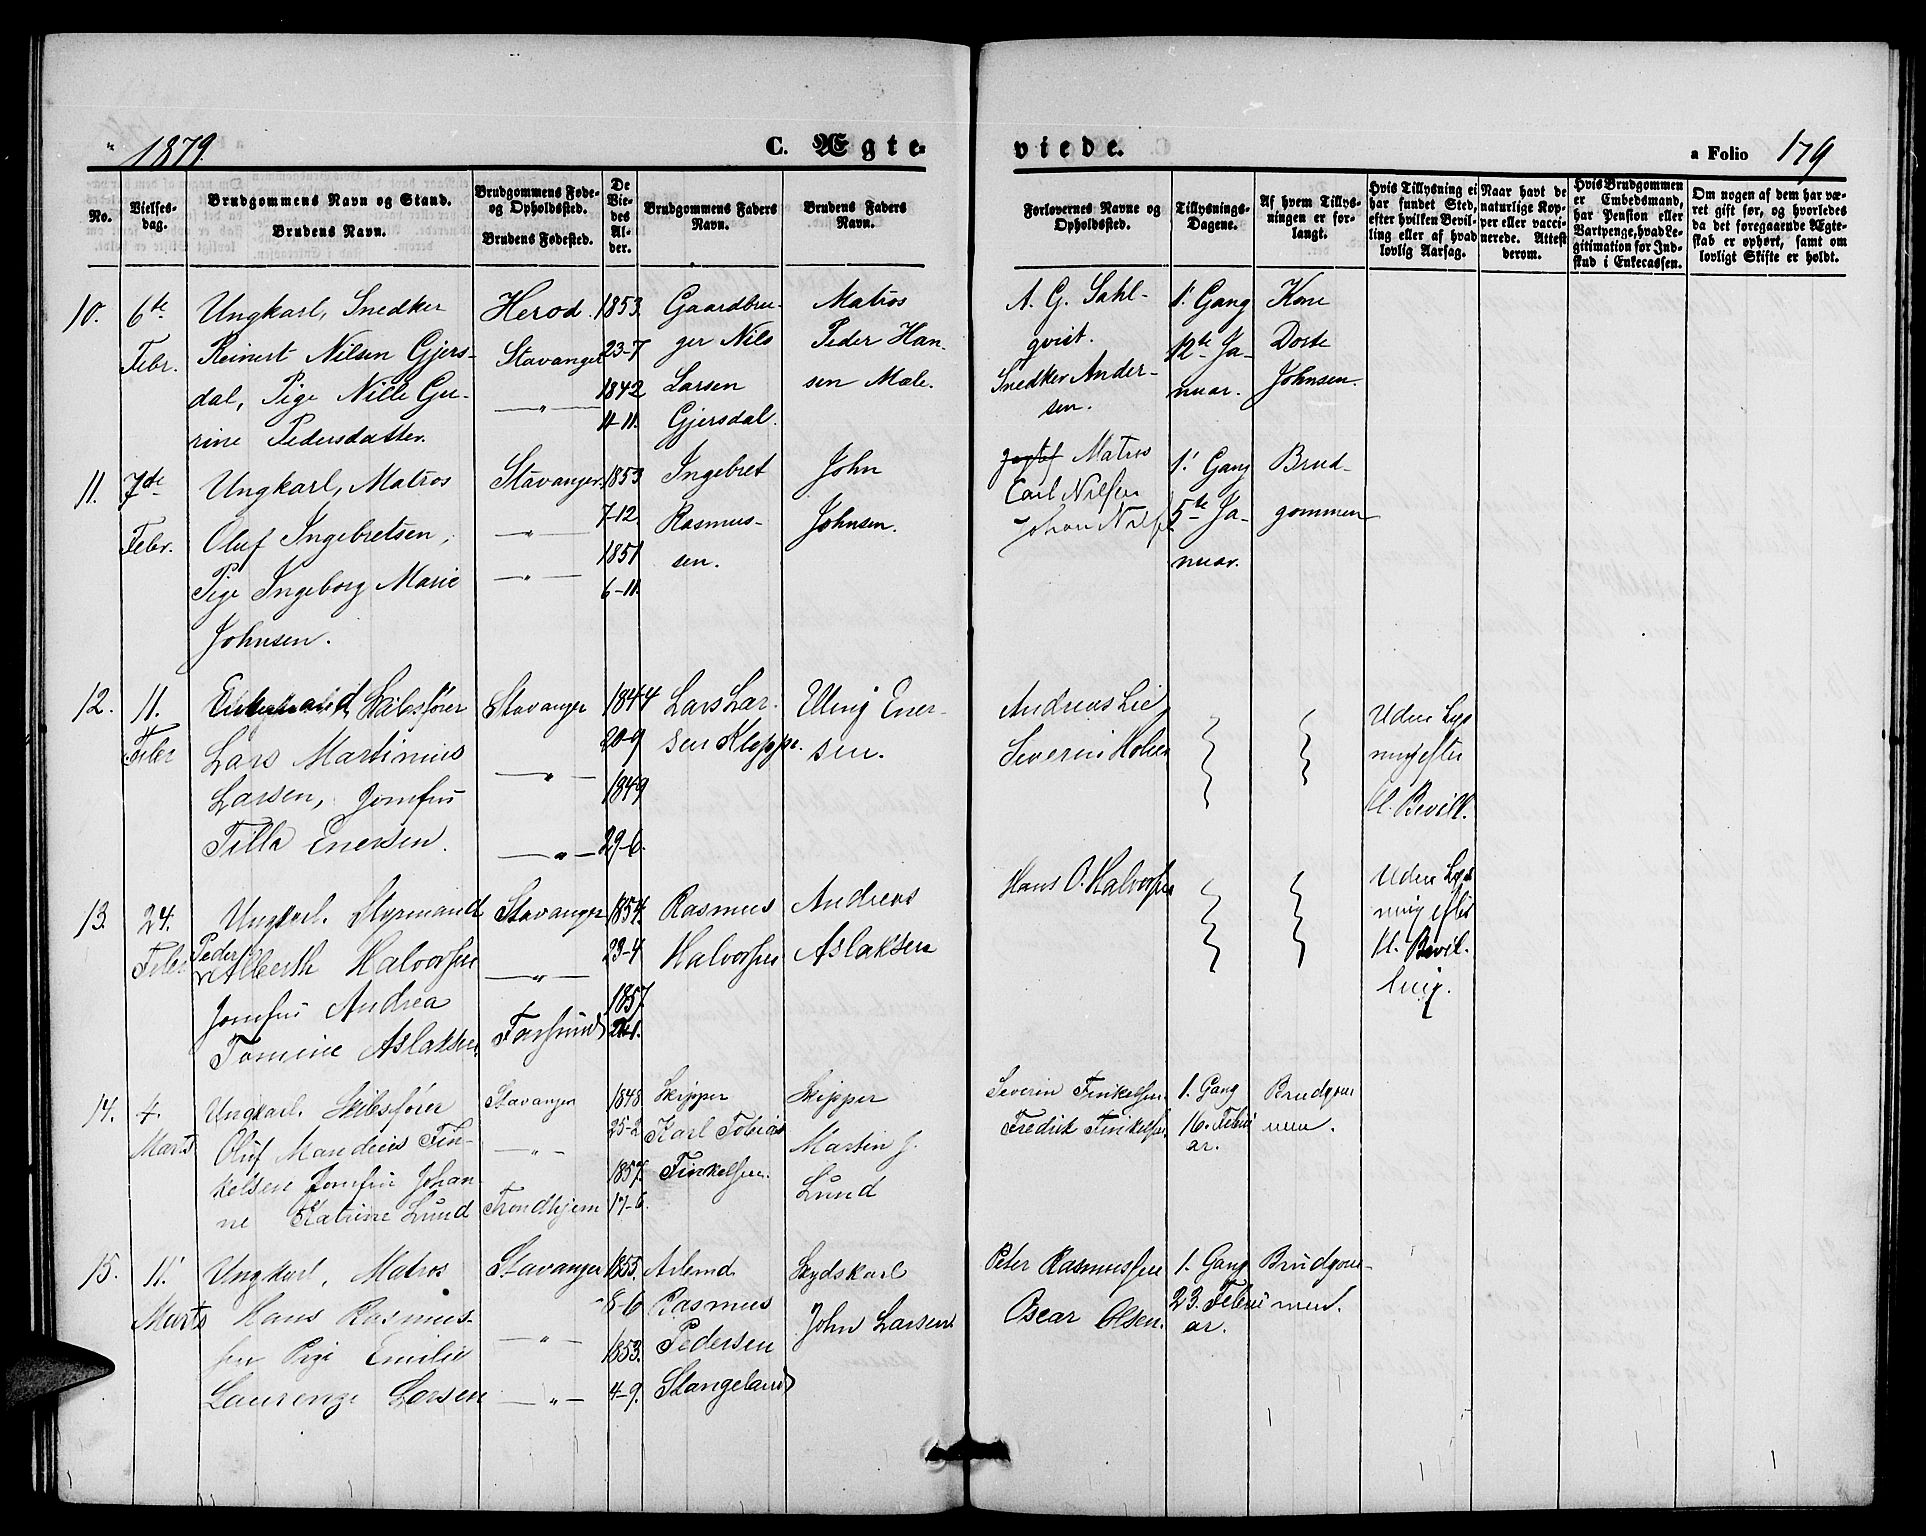 1879.
C. Ægte-
viede.
a Folio 179
No.
Vielses-
dag.
Brudgommens Navn og Stand.
Brudens Navn.
Brudgommens Føde-
og Opholdssted.
Brudens Fødested.
De
Vie-
des
Al-
der.
Brudgommens Faders
Navn.
Brudens Faders
Navn.
Forlovernes Navne og
Opholdssted.
Tillysnings-
Dagene.
Af hvem Tillys-
ningen er for-
langt.
Hvis Tillysning ei
har fundet Sted,
efter hvilken Bevil-
ling eller af hvad
lovlig Aarsag.
Naar havt de
naturlige Kop-
per eller vacci-
nerede. Attest
derom.
Hvis Brudgommen
er Embedsmand,
har Pension eller
Vartpenge, hvad Le-
gitimation for Ind-
skud i Enkecassen.
Om nogen af dem har væ-
ret gift før, og hvorledes
da det foregaaende Ægte-
skab er ophørt, samt om
lovligt Skifte er holdt.
10.
6te
Febr.
Ungkarl, Snedker
Reinert Nilsen Gjers-
dal, Pige Nille Gu-
rine Pedersdatter.
Herod.
Stavanger
— „ —
1853.
23-7
1842
11-11.
Gaardbru-
ger Nils
Larsen
Gjersdal.
Matros
Peder Han-
sen Mæle.
A. G. Sahl-
qvist.
Snedker Ander-
sen.
1. Gang
12te Ja-
nuar.
Kone
Dorte
Johnsen.
11.
7de
Febr.
Ungkarl, Matros
Oluf Ingebretsen,
Pige Ingeborg Marie
Johnsen.
Stavanger.
— „ —
— „ —
1853
7-12.
1851
6-11.
Ingebret
Rasmus-
sen.
John
Johnsen.
Matros
Carl Nilsen
Johan Nils
1. Gang
5te Ja-
nuar.
Brud-
gommen
12.
11.
Febr
Enkemand, Skibsfører
Lars Martinius
Larsen, Jomfru
Tilla Enersen.
Stavanger
— „ —
— „ —
1844
20-9
1849
29-6.
Lars Lar-
sen Kleppe.
Elling Ener-
sen.
Andreas Lie
Severin Holien
Uden Lys
ning efter
K. Bevill.
13.
24.
Febr
Ungkarl. Styrmand
Peder
Alberth Halvorsen
Jomfru Andrea
Tomine Aslaksen.
Stavanger
— „ —
Farsund
1854.
23-4
1857.
Rasmus
Halvorsen
Andreas
Aslaksen
Hans O. Halvorsen
Uden Lys
ning efter
K. Bevil-
ling.
14.
4.
Marts
Ungkarl. Skibsfører
Oluf Mandius Fin-
kelsen Jomfru Johan-
ne Katrine Lund
Stavanger
— „ —
Trondhjem
1848
25-2
1857.
17-6.
Skipper
Karl Tobias
Finkelsen.
Skipper
Martin J.
Lund
Severin Finkelsen.
Fredrik Finkelsen.
1. Gang
16. Febru
ar.
Brudgom
men.
15.
11.
Marts
Ungkarl, Matros
Hans Rasmus-
sen Pige Emilie
Laurenze Larsen
Stavanger
— „ —
— „ —
1855.
8-6
1853.
4-9.
Arbmd.
Rasmus
Pedersen
Stangeland
Bydskarl
John Larsen.
Peter Rasmussen
Oscar Olsen.
1. Gang
23. Febru
ar.
Brudgom-
men.